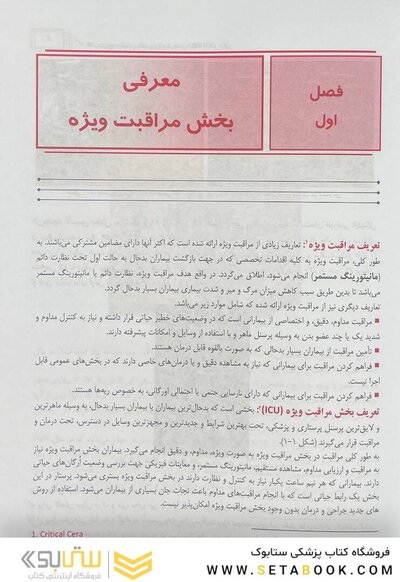 فصل
اول
معرفی
بخش مراقبت ویژه
تعریف مراقبت ویژه¹: تعاریف زیادی از مراقبت ویژه ارائه شده است که اکثر آنها دارای مضامین مشترکی می‌باشند. به
طور کلی، مراقبت ویژه به کلیه اقدامات تخصصی که در جهت بازگشت بیماران بدحال به حالت اول تحت نظارت دائم
(مانیتورینگ مستمر) انجام می‌شود، اطلاق می‌گردد. در واقع هدف مراقبت ویژه، نظارت دائم یا مانیتورینگ مستمر
می‌باشد تا بدین طریق سبب کاهش میزان مرگ و میر و شدت بیماری بیماران بسیار بدحال گردد.
تعاریف دیگری نیز از مراقبت ویژه ارائه شده که شامل موارد زیر می‌باشد.
■ مراقبت مداوم، دقیق، و اختصاصی از بیمارانی است که در وضعیت‌های خطیر حیاتی قرار داشته و نیاز به کنترل مداوم و
شدید یک یا چند عضو بدن به وسیله پرسنل ماهر و با استفاده از وسایل و امکانات پیشرفته دارند.
■ تأمین مراقبت از بیماران بسیار بدحالی که به صورت بالقوه قابل درمان هستند.
■ فراهم کردن مراقبت برای بیمارانی که نیاز به مشاهده دقیق و یا درمان‌های خاصی دارند که در بخش‌های عمومی قابل
اجرا نیست.
■ فراهم کردن مراقبت برای بیمارانی که دارای نارسایی حتمی یا احتمالی اورگانی، به خصوص ریه‌ها هستند.
تعریف بخش مراقبت ویژه (ICU)²: بخشی است که بدحال‌ترین بیماران یا بیماران بسیار بدحال، به وسیله ماهرترین
و لایق‌ترین پرسنل پرستاری و پزشکی، تحت بهترین شرایط و جدیدترین و مجهزترین وسایل در دسترس، تحت درمان و
مراقبت قرار می‌گیرند (شکل ۱-۱).
به طور کلی مراقبت در بخش مراقبت ویژه به صورت ویژه، مداوم، و دقیق انجام می‌گیرد. بیماران بخش مراقبت ویژه نیاز
به مراقبت و ارزیابی مداوم، مشاهده مستقیم، مانیتورینگ مستمر، و معاینات فیزیکی جهت بررسی وضعیت ارگان‌های حیاتی
دارند. بیمارانی که هر نیم ساعت یکبار نیاز به کنترل و نظارت دارند در بخش مراقبت ویژه بستری می‌شود. پرستار در این
بخش یک رابط حیاتی است که با انجام مراقبت‌های مداوم باعث نجات جان بسیاری از بیماران می‌شود. استفاده از روش
های جدید جراحی و درمان بدون وجود بخش مراقبت ویژه امکان‌پذیر نیست.
1. Critical Cera
ستابوک
فروشگاه اینترنتی کتاب
فروشگاه کتاب پزشکی ستابوک
WWW.SETABOOK.COM